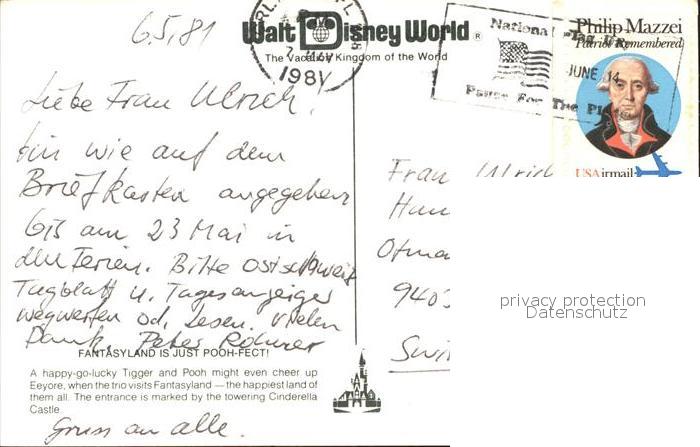 6.5.81
Walt Disney World
The Vacation Kingdom of the World
1981
National Flag Day
JUNE 14
Pause For The
Philip Mazzei
Patriot Remembered
USAirmail
Liebe Frau Ulrich,
bin wie auf dem
Briefkasten angegeben
bis am 23 Mai in
den Ferien. Bitte Ostschweiz
Tagblatt u. Tagesanzeiger
wegwerfen od. lesen. Vielen
Dank, Peter Rohner
Frau Ulrich
Otma
Swi
privacy protection
Datenschutz
FANTASYLAND IS JUST POOH-FECT!
A happy-go-lucky Tigger and Pooh might even cheer up
Eeyore, when the trio visits Fantasyland — the happiest land of
them all. The entrance is marked by the towering Cinderella
Castle.
Gruss an alle.